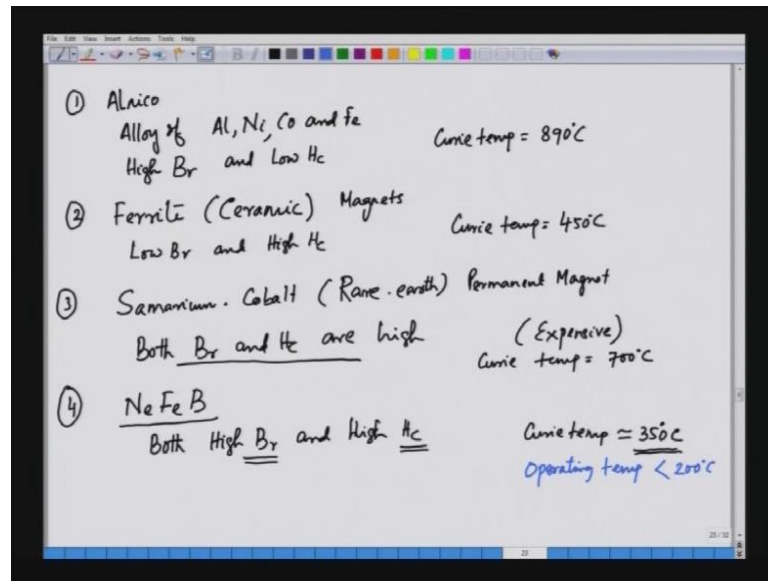 File Edit View Insert Actions Tools Help
① Alnico
Alloy of Al, Ni, Co and Fe
Curie temp = 890°C
High Br and Low Hc
② Ferrite (Ceramic) Magnets
Curie temp = 450°C
Low Br and High Hc
③ Samarium-Cobalt (Rare-earth) Permanent Magnet
Both Br and Hc are high
(Expensive)
Curie temp = 700°C
④ NeFeB
Both High Br and High Hc
Curie temp ≃ 350°C
Operating temp < 200°C
23/32
23